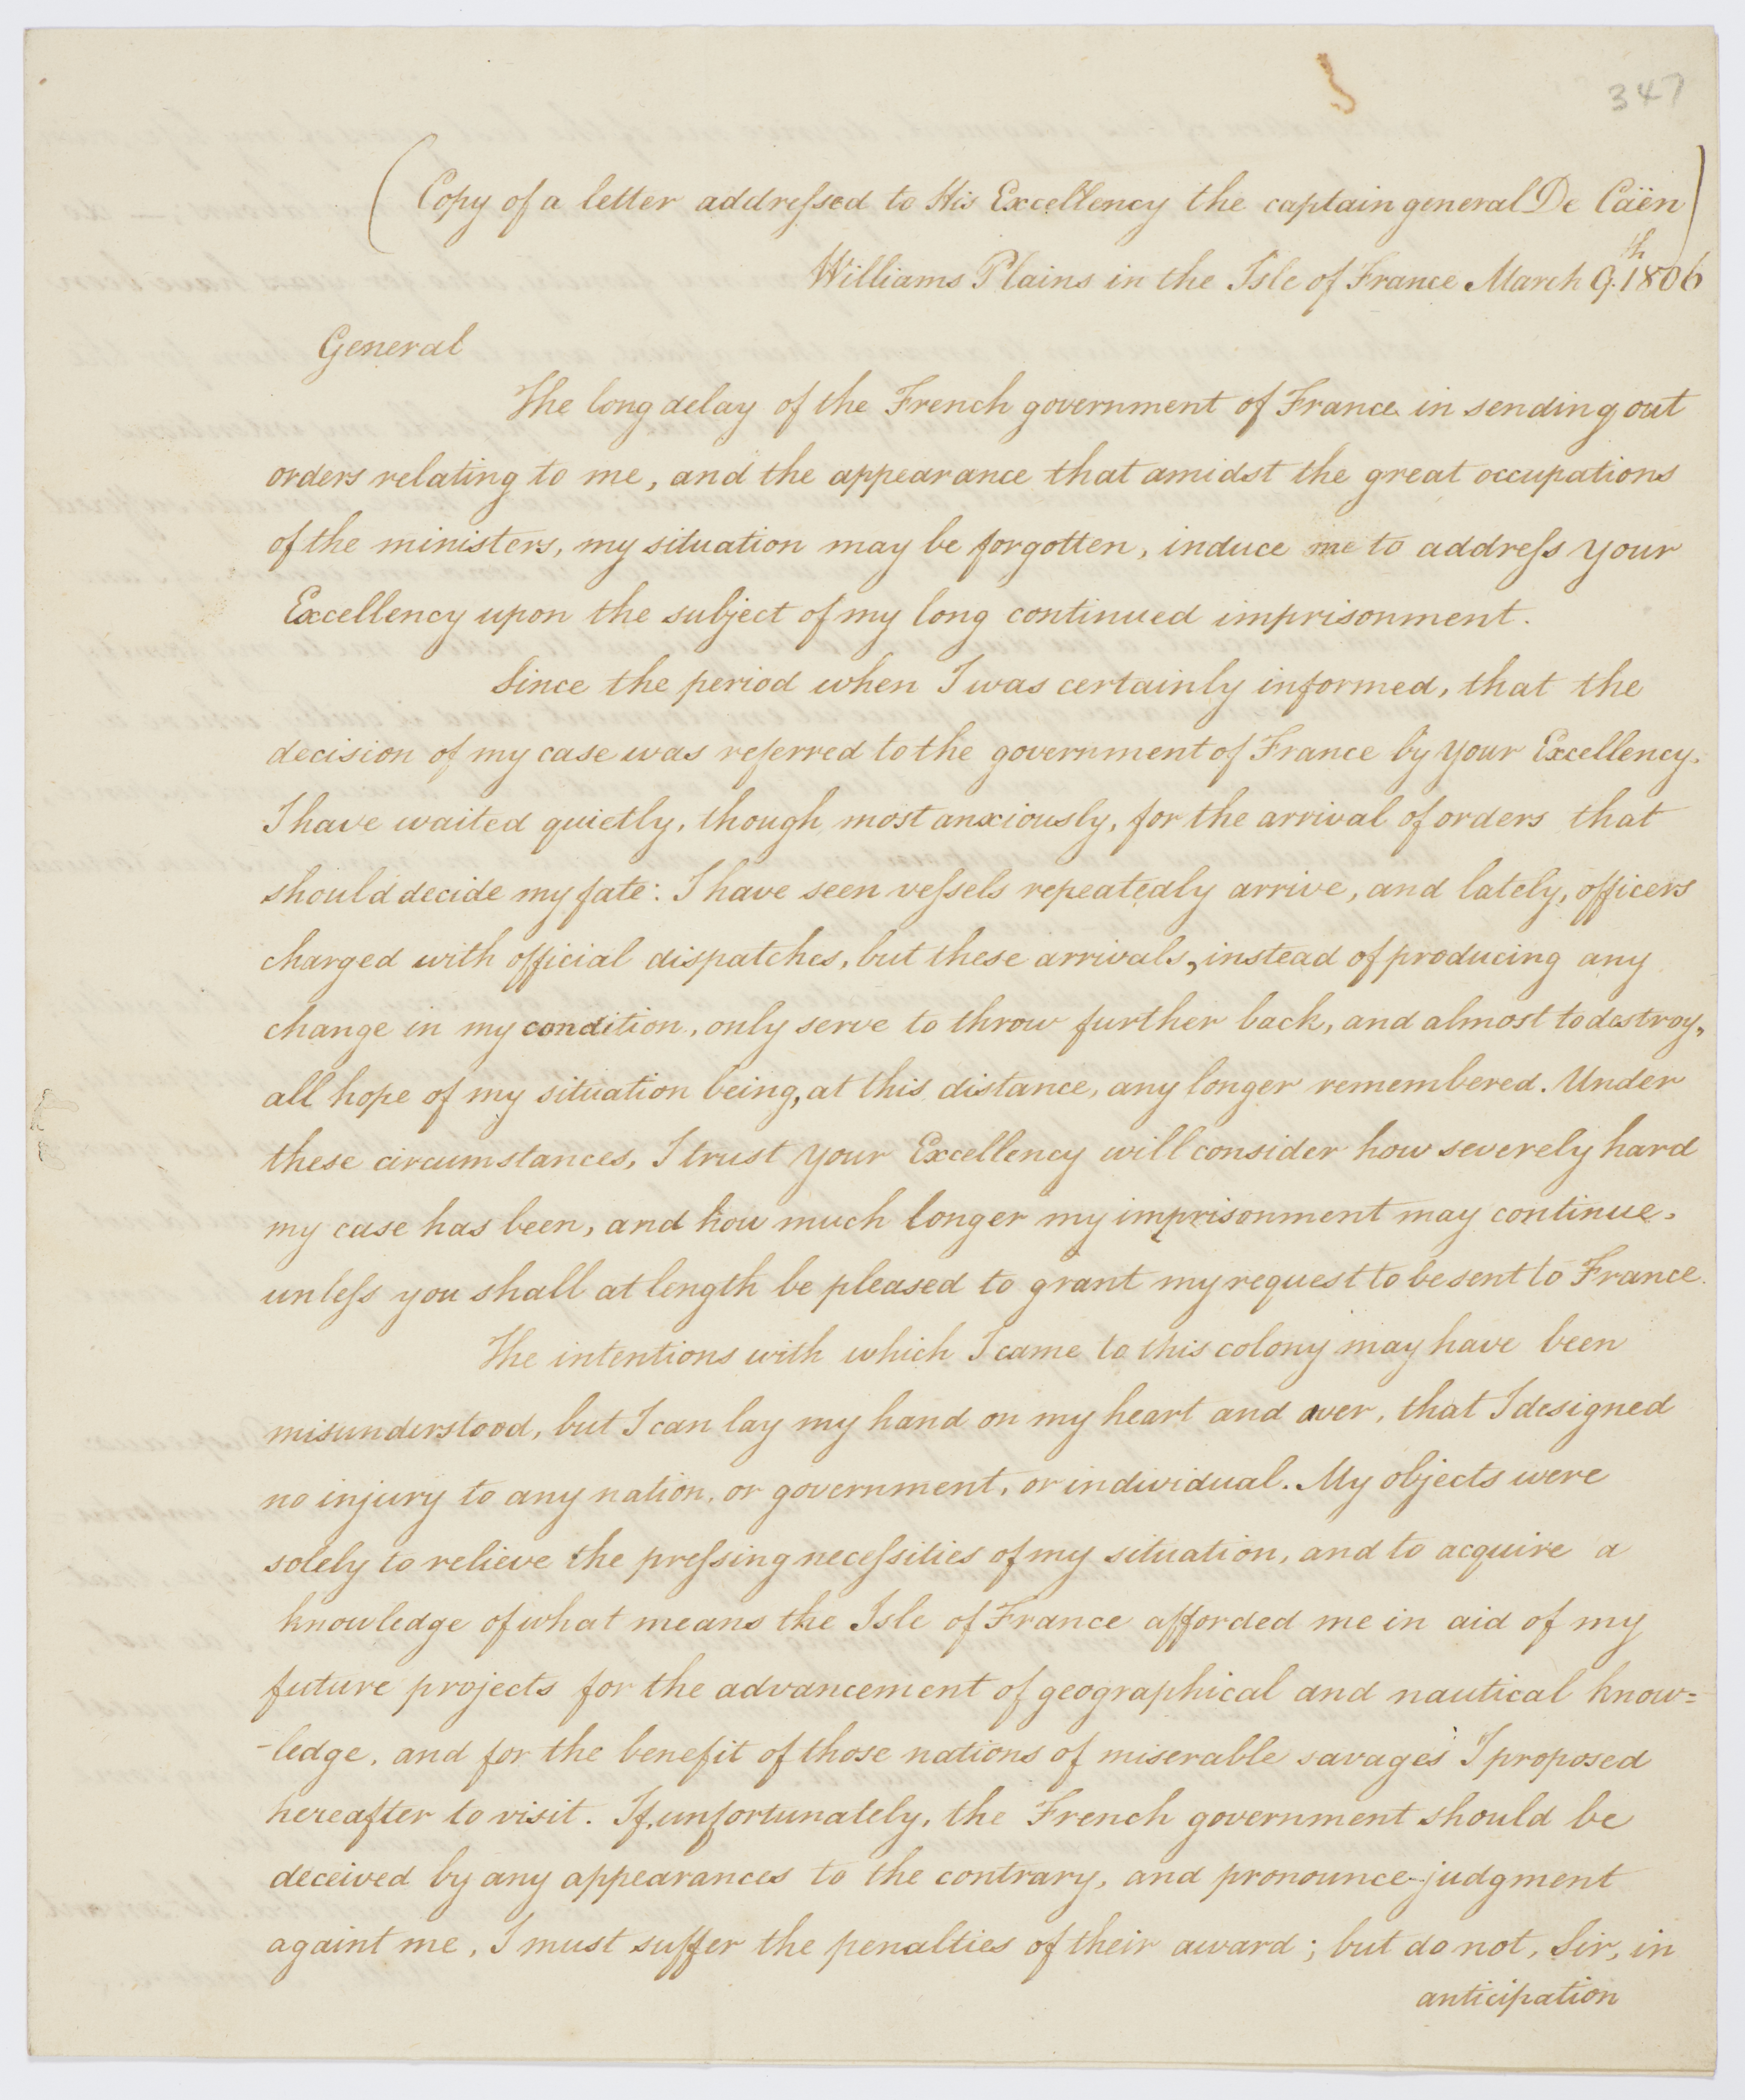 347
(Copy of a letter addreſsed to His Excellency the captain general De Caën)
Williams Plains in the Isle of France March 9.th 1806
General
The long delay of the French government of France in sending out
orders relating to me, and the appearance that amidst the great occupations
of the ministers, my situation may be forgotten, induce me to addreſs your
Excellency upon the subject of my long continued imprisonment.
Since the period when I was certainly informed, that the
decision of my case was referred to the government of France by your Excellency,
I have waited quietly, though most anxiously, for the arrival of orders that
should decide my fate: I have seen veſsels repeatedly arrive, and lately, officers
charged with official dispatches, but these arrivals, instead of producing any
change in my condition, only serve to throw further back, and almost to destroy,
all hope of my situation being, at this distance, any longer remembered. Under
these circumstances, I trust your Excellency will consider how severely hard
my case has been, and how much longer my imprisonment may continue,
unleſs you shall at length be pleased to grant my request to be sent to France.
The intentions with which I came to this colony may have been
misunderstood, but I can lay my hand on my heart and aver, that I designed
no injury to any nation, or government, or individual. My objects were
solely to relieve the preſsing neceſsities of my situation, and to acquire a
knowledge of what means the Isle of France afforded me in aid of my
future projects for the advancement of geographical and nautical know=
-ledge, and for the benefit of those nations of miserable savages I proposed
hereafter to visit. If, unfortunately, the French government should be
deceived by any appearances to the contrary, and pronounce judgment
againt me, I must suffer the penalties of their award; but do not, Sir, in
anticipation